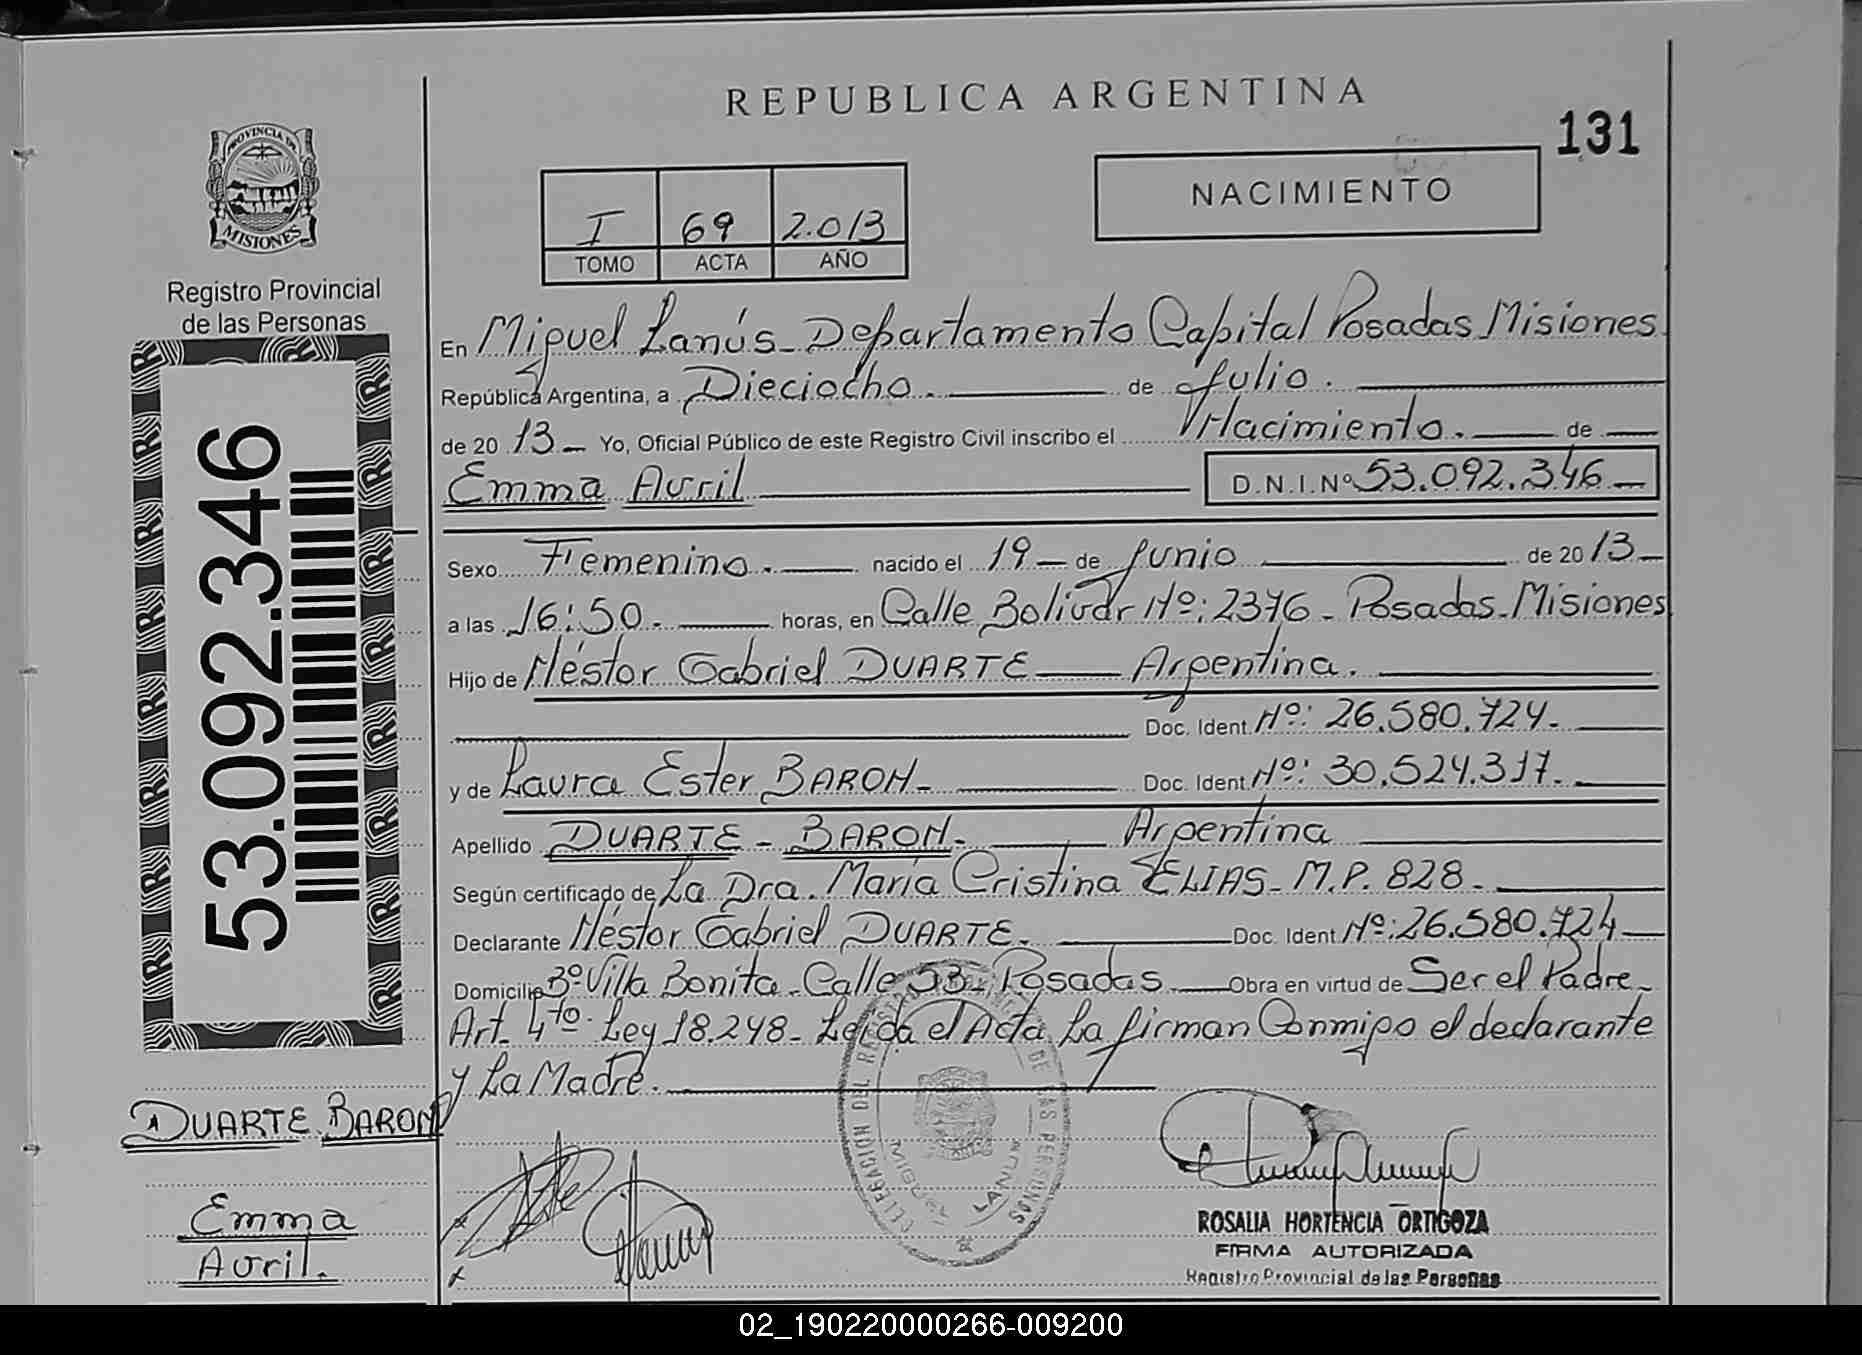 REPUBLICA ARGENTINA
131
PROVINCIA DE
MISIONES
Registro Provincial
de las Personas
I 69 2.013
TOMO ACTA AÑO
NACIMIENTO
En Miguel Lanús - Departamento Capital Posadas Misiones
República Argentina, a Dieciocho. de Julio.
de 20 13 - Yo, Oficial Público de este Registro Civil inscribo el Nacimiento. de
Emma Avril D.N.I.Nº 53.092.346
Sexo Femenino. nacido el 19 - de Junio de 20 13 -
a las 16:50. horas, en Calle Bolívar Nº: 2376 - Posadas - Misiones
Hijo de Néstor Gabriel DUARTE Argentina.
Doc. Ident. Nº: 26.580.724.
y de Laura Ester BARON - Doc. Ident. Nº: 30.524.317.
Apellido DUARTE - BARON - Argentina
Según certificado de La Dra. María Cristina ELIAS - M.P. 828.
Declarante Néstor Gabriel DUARTE. Doc. Ident. Nº: 26.580.724
Domicilio 3º Villa Bonita - Calle 53 - Posadas. Obra en virtud de Ser el Padre -
Art. 4to. Ley 18.248 - Leída el Acta La firman Conmigo el declarante
y La Madre.
53.092.346
DUARTE BARON
Emma
Avril.
DELEGACION DEL REGISTRO PROVINCIAL DE LAS PERSONAS
MIGUEL LANUS
ROSALIA HORTENCIA ORTIGOZA
FIRMA AUTORIZADA
Registro Provincial de las Personas
02_190220000266-009200